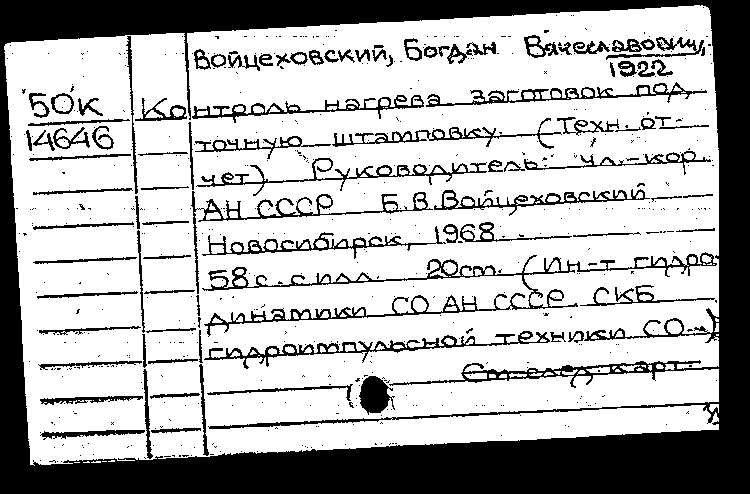 Войцеховский, Богдан Вячеславович,
1922
50К
14646
Контроль нагрева заготовок под
точную штамповку. (Техн. от-
чет) Руководитель: чл.-кор.
АН СССР Б.В.Войцеховский
Новосибирск, 1968.
58 с. с илл. 20 ст. (Ин-т гидро-
динамики СО АН СССР. СКБ
гидроимпульсной техники СО-)
См. след. карт.